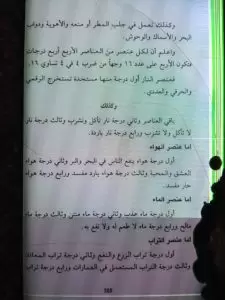 وكذلك تعمل في جلب المطر أو منعه والأهوية ودواب
البحر والأسماك والوحوش.
واعلم أن لكل عنصر من العناصر الأربع أربع درجات
فتكون الأربع على عدد ١٦ وجهاً من ضرب ٤ في ٤ تساوي ١٦.
فعنصر النار أول درجة منها مستخدة تستخرج الرقمي
والحرفي والعددي.
وكذلك
باقي العناصر وثاني درجة نار تأكل وتشرب وثالث درجة نار
لا تأكل ولا تشرب ورابع درجة نار باردة.
اما عنصر الهواء
أول درجة هواء ينفع الناس في البحر والبر وثاني درجة هواء
العشق والمحبة وثالث درجة هواء بارد مفسد ورابع درجة هواء
حار مفسد.
اما عنصر الماء
أول درجة ماء عذب وثاني درجة ماء منتن وثالث درجة ماء
مالح ورابع درجة ماء لا طعم له ولا نفع به.
اما عنصر التراب
أول درجة تراب الزرع والنفع وثاني درجة تراب المعادن
وثالث درجة التراب المستعمل في العمارات ورابع درجة تراب